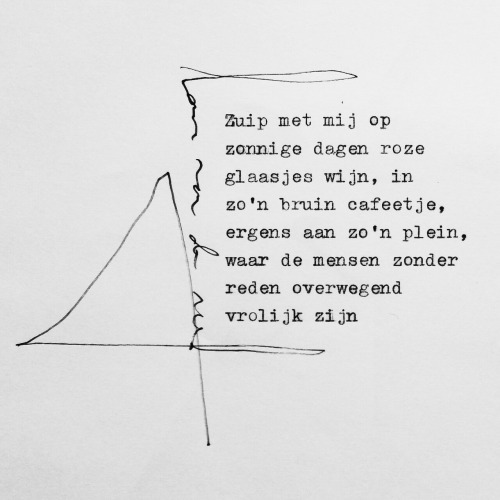 Zuip met mij op
zonnige dagen roze
glaasjes wijn, in
zo'n bruin cafeetje,
ergens aan zo'n plein,
waar de mensen zonder
reden overwegend
vrolijk zijn